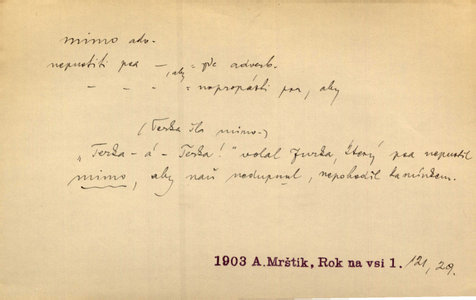 mimo adv.
nepustiti psa –, aby = jde adverb.
– – – = nepropásti psa, aby
(Terka šla mimo.)
„Terka – á – Terka!" volal Jurka, který psa nepustil
mimo, aby naň nedupnul, nepohodil kamínkem.
1903 A. Mrštík, Rok na vsi 1. 121, 29.